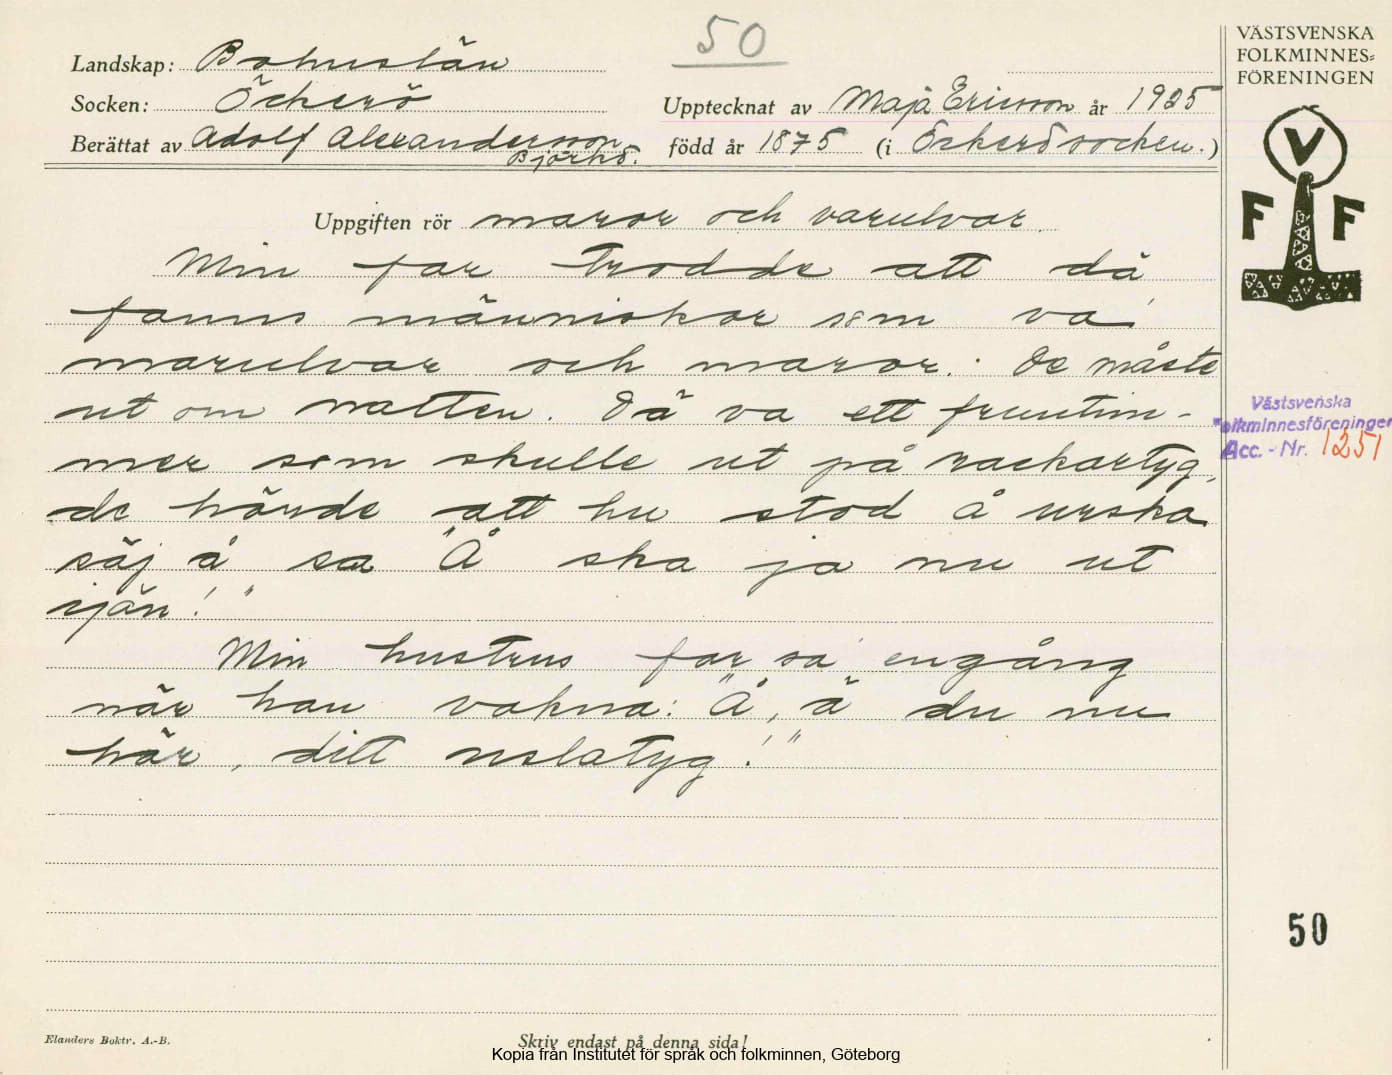 50
VÄSTSVENSKA
FOLKMINNES=
FÖRENINGEN
Landskap: Bohuslän
Socken: Öckerö
Upptecknat av Maja Ericsson år 1925
Berättat av Adolf Alexandersson, Björkö. född år 1875 (i Öckerö socken.)
V
F F
Uppgiften rör maror och varulvar.
Min far trodde att då
fanns människor som va
marulvar och maror. De måste
ut om natten. Då va ett fruntim-
mer som skulle ut på rackartyg,
de hörde att hu stod å urska
säj å sa "Å ska ja nu ut
ijän!"
Min hustrus far sa engång
när han vakna: "Å, ä du nu
här, ditt uslatyg!"
Västsvenska
Folkminnesföreningen
Acc. - Nr. 1251
50
Elanders Boktr. A.-B.
Skriv endast på denna sida!
Kopia från Institutet för språk och folkminnen, Göteborg